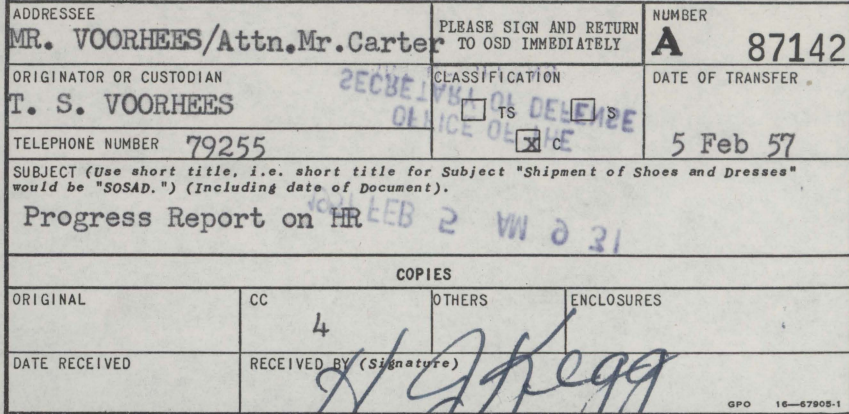 ADDRESSEE
MR. VOORHEES/Attn.Mr.Carter
PLEASE SIGN AND RETURN
TO OSD IMMEDIATELY
NUMBER
A 87142
ORIGINATOR OR CUSTODIAN
T. S. VOORHEES
CLASSIFICATION
TS S
x C
DATE OF TRANSFER
5 Feb 57
TELEPHONE NUMBER 79255
SECRETARY OF DEFENSE
OFFICE OF THE
SUBJECT (Use short title, i.e. short title for Subject "Shipment of Shoes and Dresses"
would be "SOSAD.") (Including date of Document).
Progress Report on HR
1957 FEB 5 AM 9 31
COPIES
ORIGINAL
CC
4
OTHERS
ENCLOSURES
DATE RECEIVED
RECEIVED BY (Signature)
H J Kegg
GPO 16—67905-1